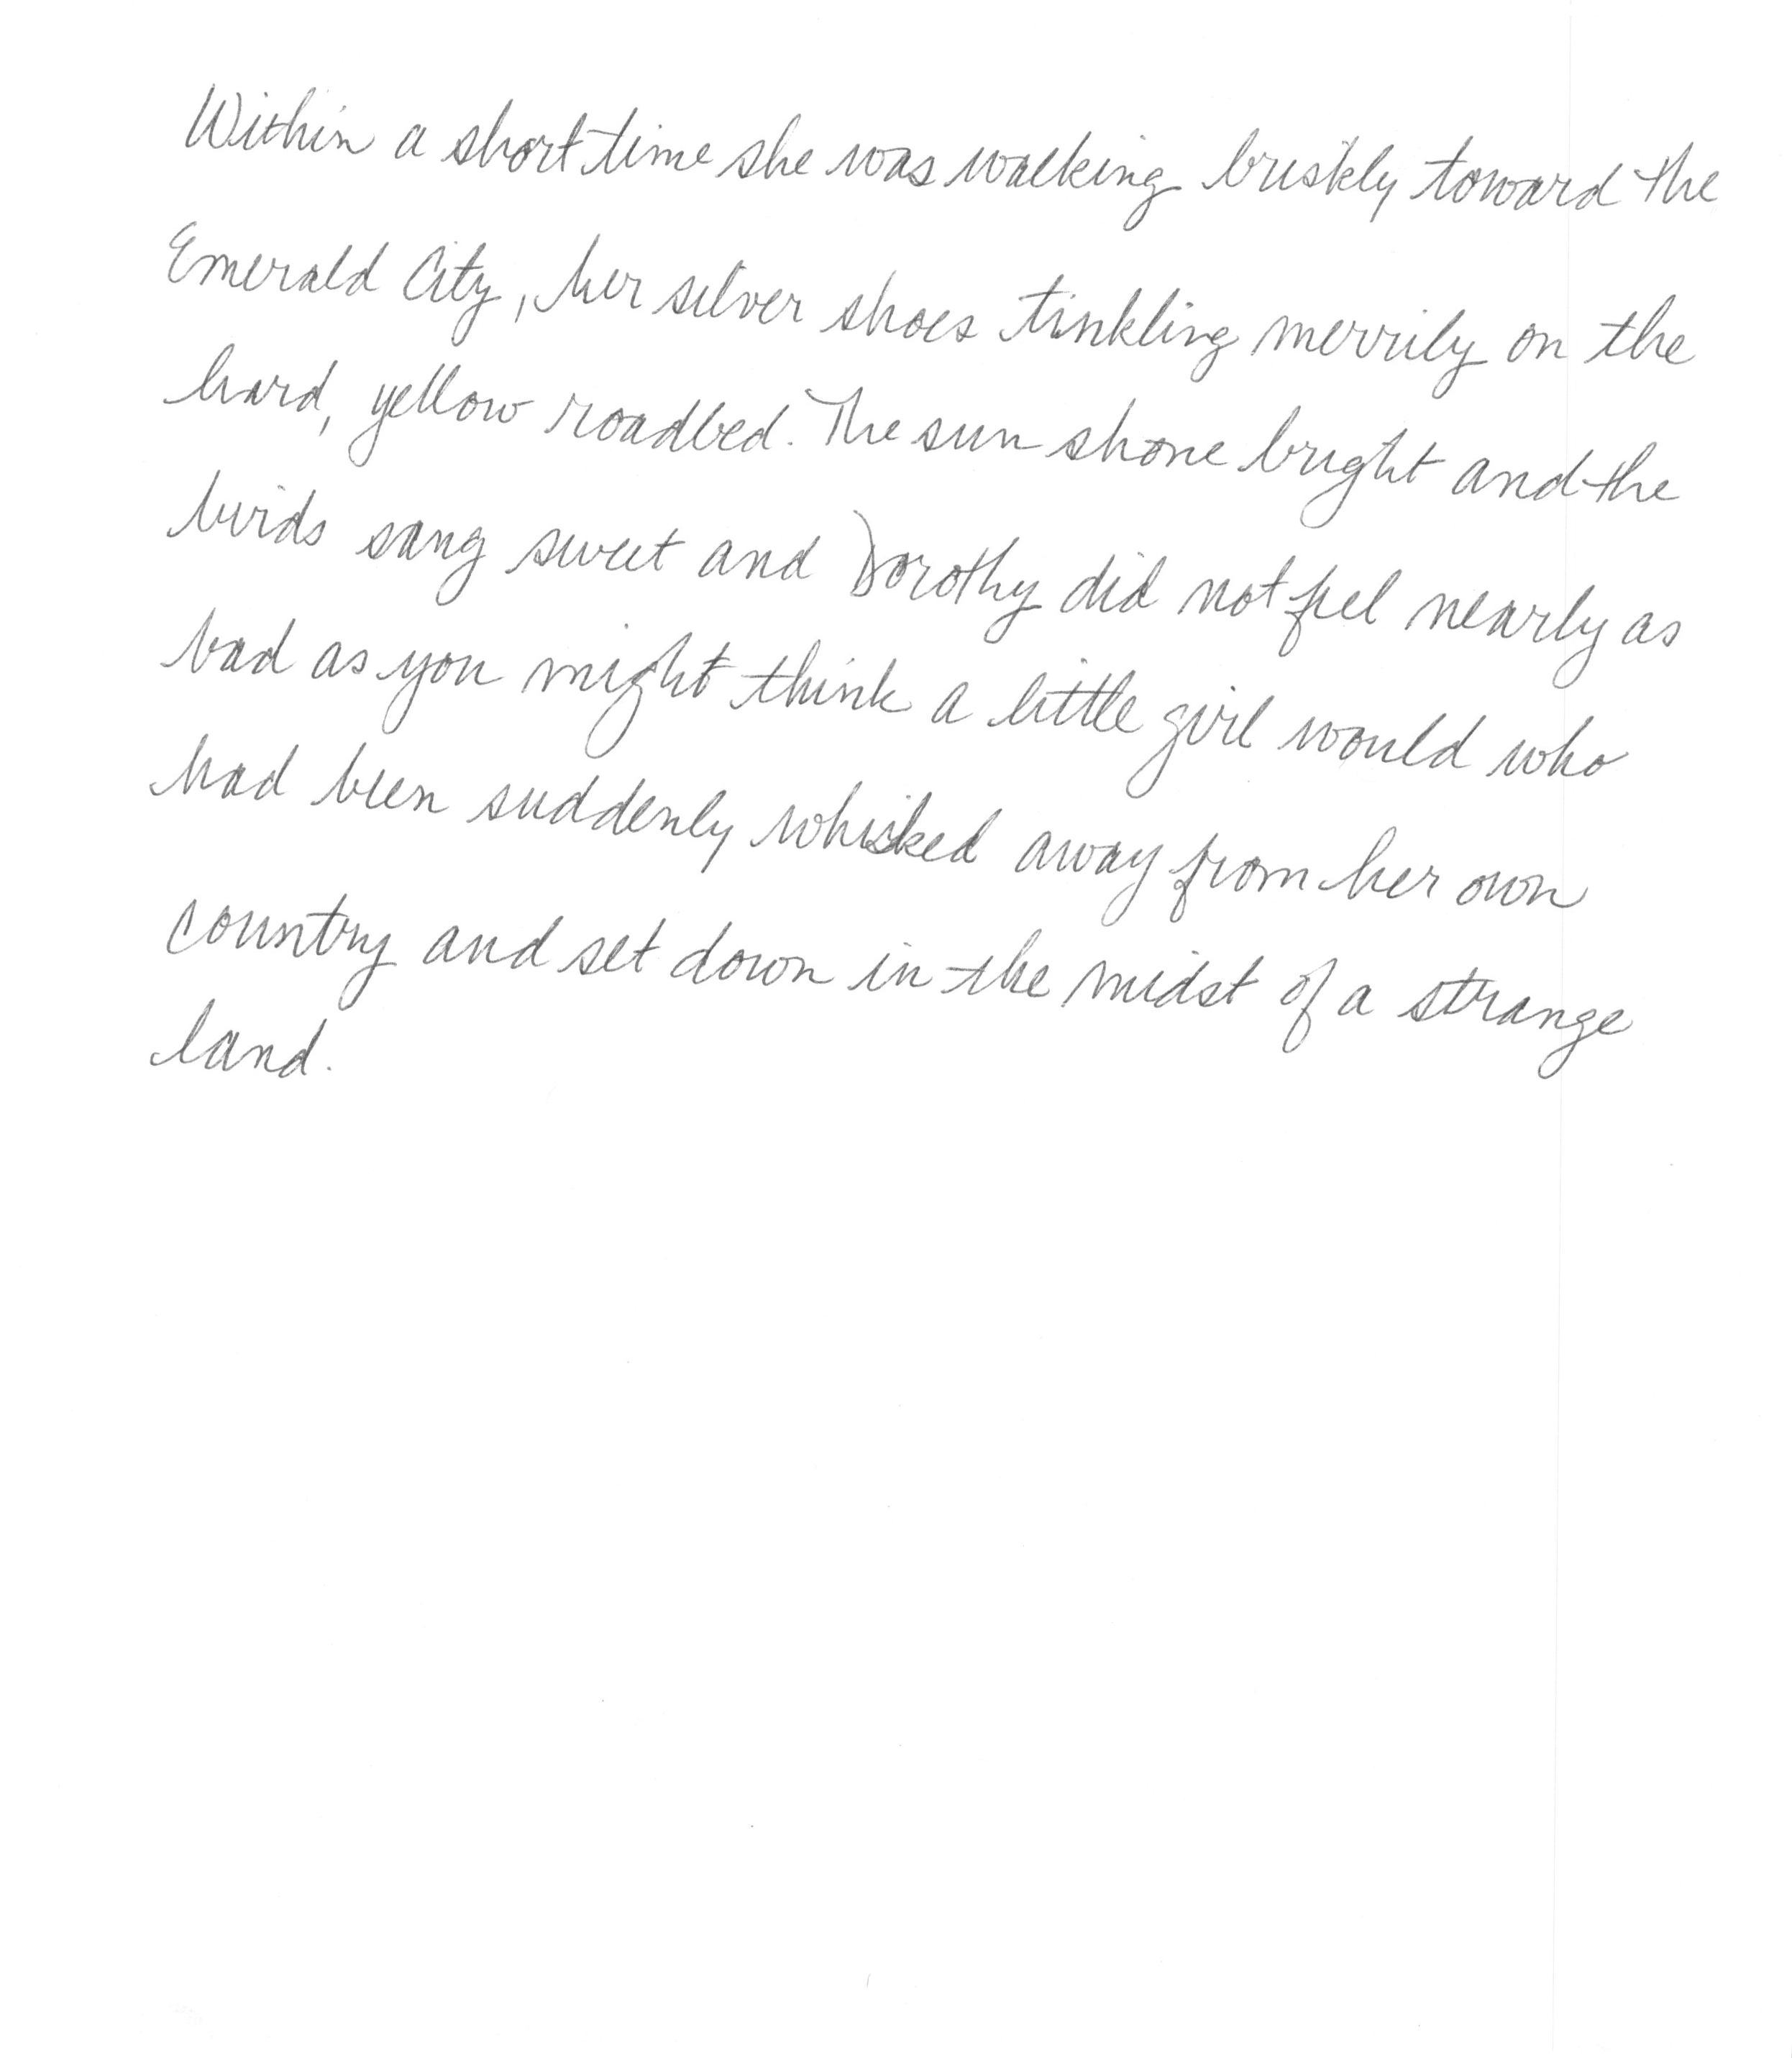 Within a short time she was walking briskly toward the
Emerald City, her silver shoes tinkling merrily on the
hard, yellow roadbed. The sun shone bright and the
birds sang sweet and Dorothy did not feel nearly as
bad as you might think a little girl would who
had been suddenly whisked away from her own
country and set down in the midst of a strange
land.